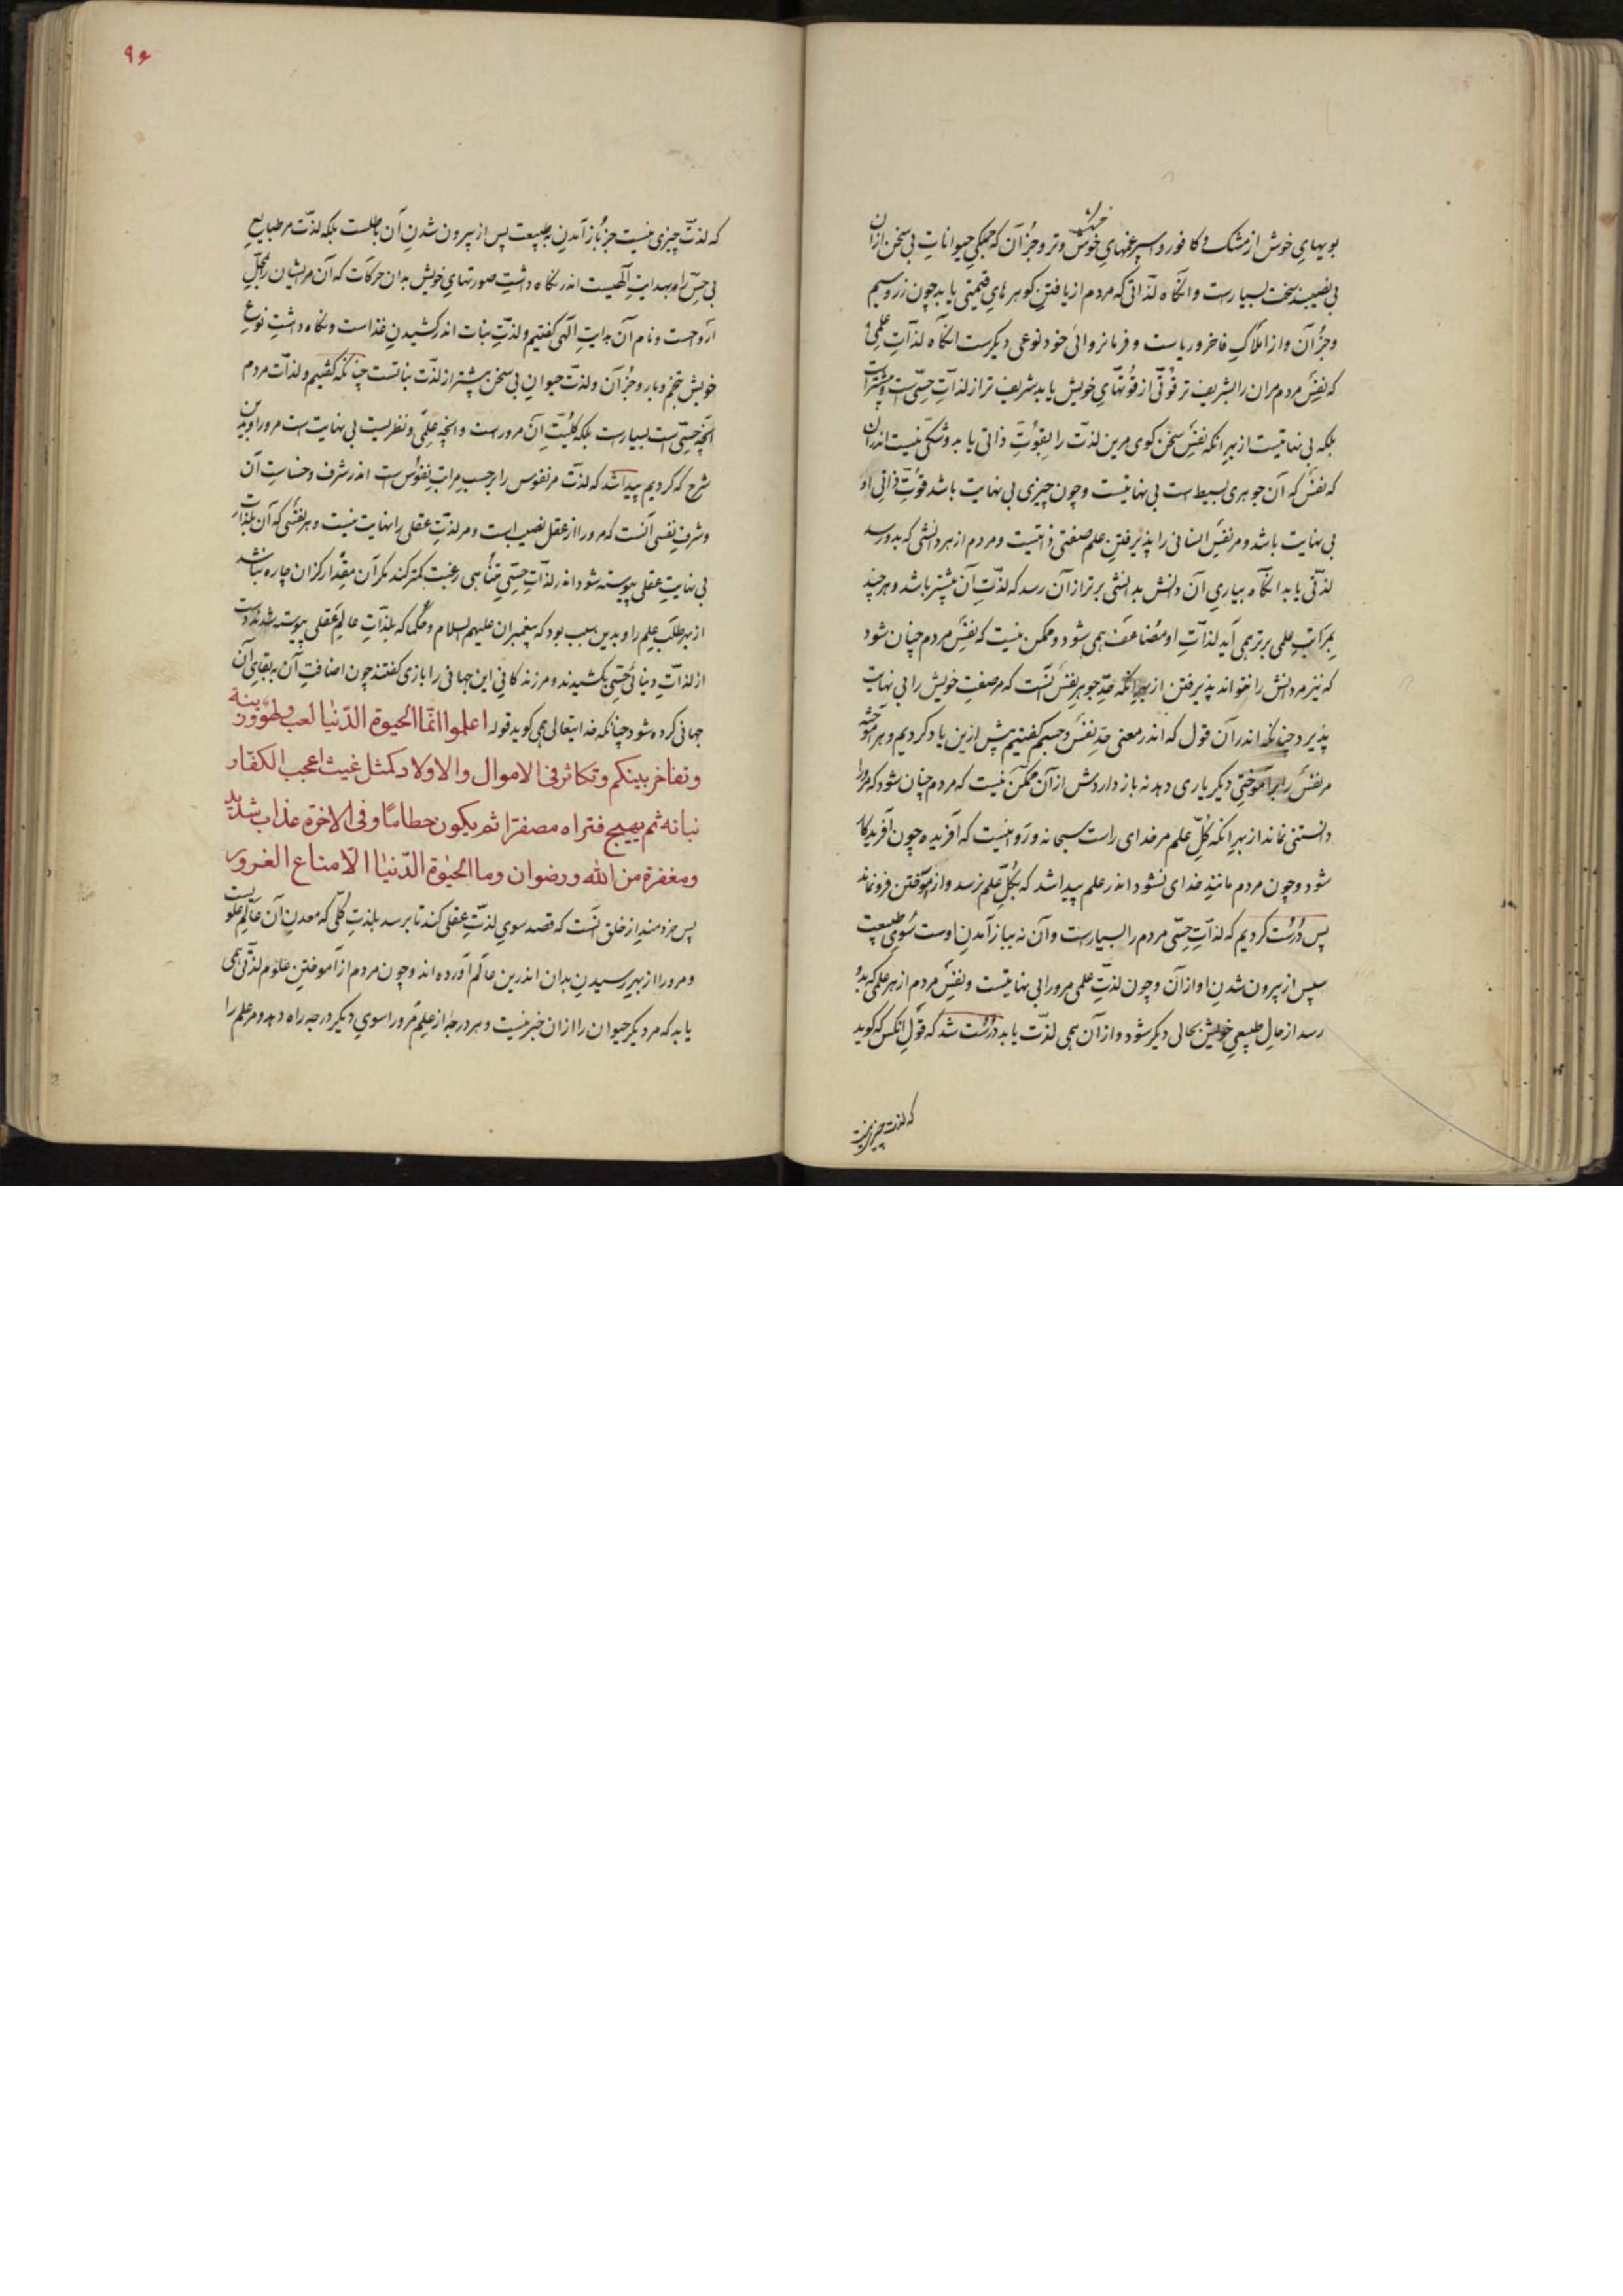 بویهای خوش از مشک و کافور و اسپرغمهای خوش و تر و جز آن که جملگی حیوانات بی سخن ازان
خشک
بی نصیبند سخت بسیارست وانگاه لذاتی که مردم از یافتن گوهرهای قیمتی یابد چون زر و سیم
و جز آن و از املاک فاخر و ریاست و فرمانروائی خود نوعی دیگرست انگاه لذات علمی
که نفس مردم مران را بشریف تر قوتی از قوتهای خویش یابد شریف تر از لذات حسی است و بیشتر است
بلکه بی نهایتست از بهر انکه نفس سخن گوی مرین لذت را بقوت ذاتی یابد و شکی نیست اندران
که نفس که آن جوهری بسیط است بی نهایتست و چون چیزی بی نهایت باشد قوت ذاتی او
بی نهایت باشد و مر نفس انسانی را پذیرفتن علم صفتی ذاتیست و مردم از هر دانشی که بدو رسد
لذتی یابد انگاه بیاری آن دانش بدانشی برتر ازان رسد که لذت آن بیشتر باشد و هر چند
بمراتب علمی برتر همی آید لذات او مضاعف همی شود و ممکن نیست که نفس مردم چنان شود
که نیز مر دانش را نتواند پذیرفتن از بهر انکه حد جوهر نفس آنست که مر صفت خویش را بی نهایت
پذیرد چنانکه اندر آن قول که اندر معنی حد نفس و جسم گفتیم پیش ازین یاد کردیم و هر آموخته
مر نفس را بر آموختنی دیگر یاری دهد نه باز داردش از آن ممکن نیست که مردم چنان شود که مرورا
دانستنی نماند از بهر انکه کل علم مر خدای راست سبحانه و روا نیست که آفریده چون آفریدگار
شود و چون مردم مانند خدای نشود اندر علم پیدا شد که بکل علم نرسد و از آموختن فرو نماند
پس درست کردیم که لذات حسی مردم را بسیارست و آن نه بباز آمدن اوست سوی طبیعت
سپس از بیرون شدن او ازان و چون لذت علمی مرورا بی نهایتست و نفس مردم از هر علمی که بدو
رسد از حال طبیعی خویش بحالی دیگر شود و از آن همی لذت یابد درست شد که قول انکس که گوید
که لذت چیزی نیست
۹۶
که لذت چیزی نیست جز باز آمدن بطبیعت پس از بیرون شدن آن باطلست بلکه لذت مر طبایع
بی حس را بهدایت الهیست اندر نگاه داشت صورتهای خویش بدان حرکات که آن مر ایشان را بمحل
ارواحست و نام آن هدایت الهی گفتیم و لذت نبات اندر کشیدن غذاست و نگاه داشت نوع
خویش بتخم و بار و جز آن و لذت حیوان بی سخن بیشتر از لذت نباتست چنانکه گفتیم و لذات مردم
انچه حسی است بسیارست بلکه کلیت آن مرورست و انچه علمی و نظریست بی نهایت است مرورا و بدین
شرح که کردیم پیدا شد که لذت مر نفوس را بر حسب مراتب نفوس است اندر شرف و خساست آن
و شرف نفسی آنست که مرورا از عقل نصیب است و مر لذت عقلی را نهایت نیست و هر نفسی که آن بلذات
بی نهایت عقلی پیوسته شود اندر لذات حسی متناهی رغبت کمتر کند مگر آن مقدار کزان چاره نباشد
از بهر طلب علم را و بدین سبب بود که پیغمبران علیهم السلام و حکما که بلذات عالم عقلی پیوسته شدند دست
از لذات دنیائی حسی بکشیدند و مر زندگانی این جهانی را بازی گفتند چون اضافت آن ببقای آن
جهانی کرده شود چنانکه خدایتعالی همی گوید قوله اعلموا انما الحیوة الدنیا لعب ولهو وزینة
وتفاخر بینکم وتکاثر فی الاموال والاولاد کمثل غیث اعجب الکفار
نباته ثم یهیج فتراه مصفرا ثم یکون حطاما وفی الاخرة عذاب شدید
ومغفرة من الله ورضوان وما الحیوة الدنیا الا متاع الغرور
پس خردمند از خلق آنست که قصد سوی لذت عقلی کند تا برسد بلذت کلی که معدن آن عالم علویست
و مرورا از بهر رسیدن بدان اندرین عالم آورده اند و چون مردم از آموختن علوم لذتی همی
یابد که مر دیگر حیوان را ازان خبر نیست و هر درجۀ از علم مرورا سوی دیگر درجه راه دهد و مر علم را